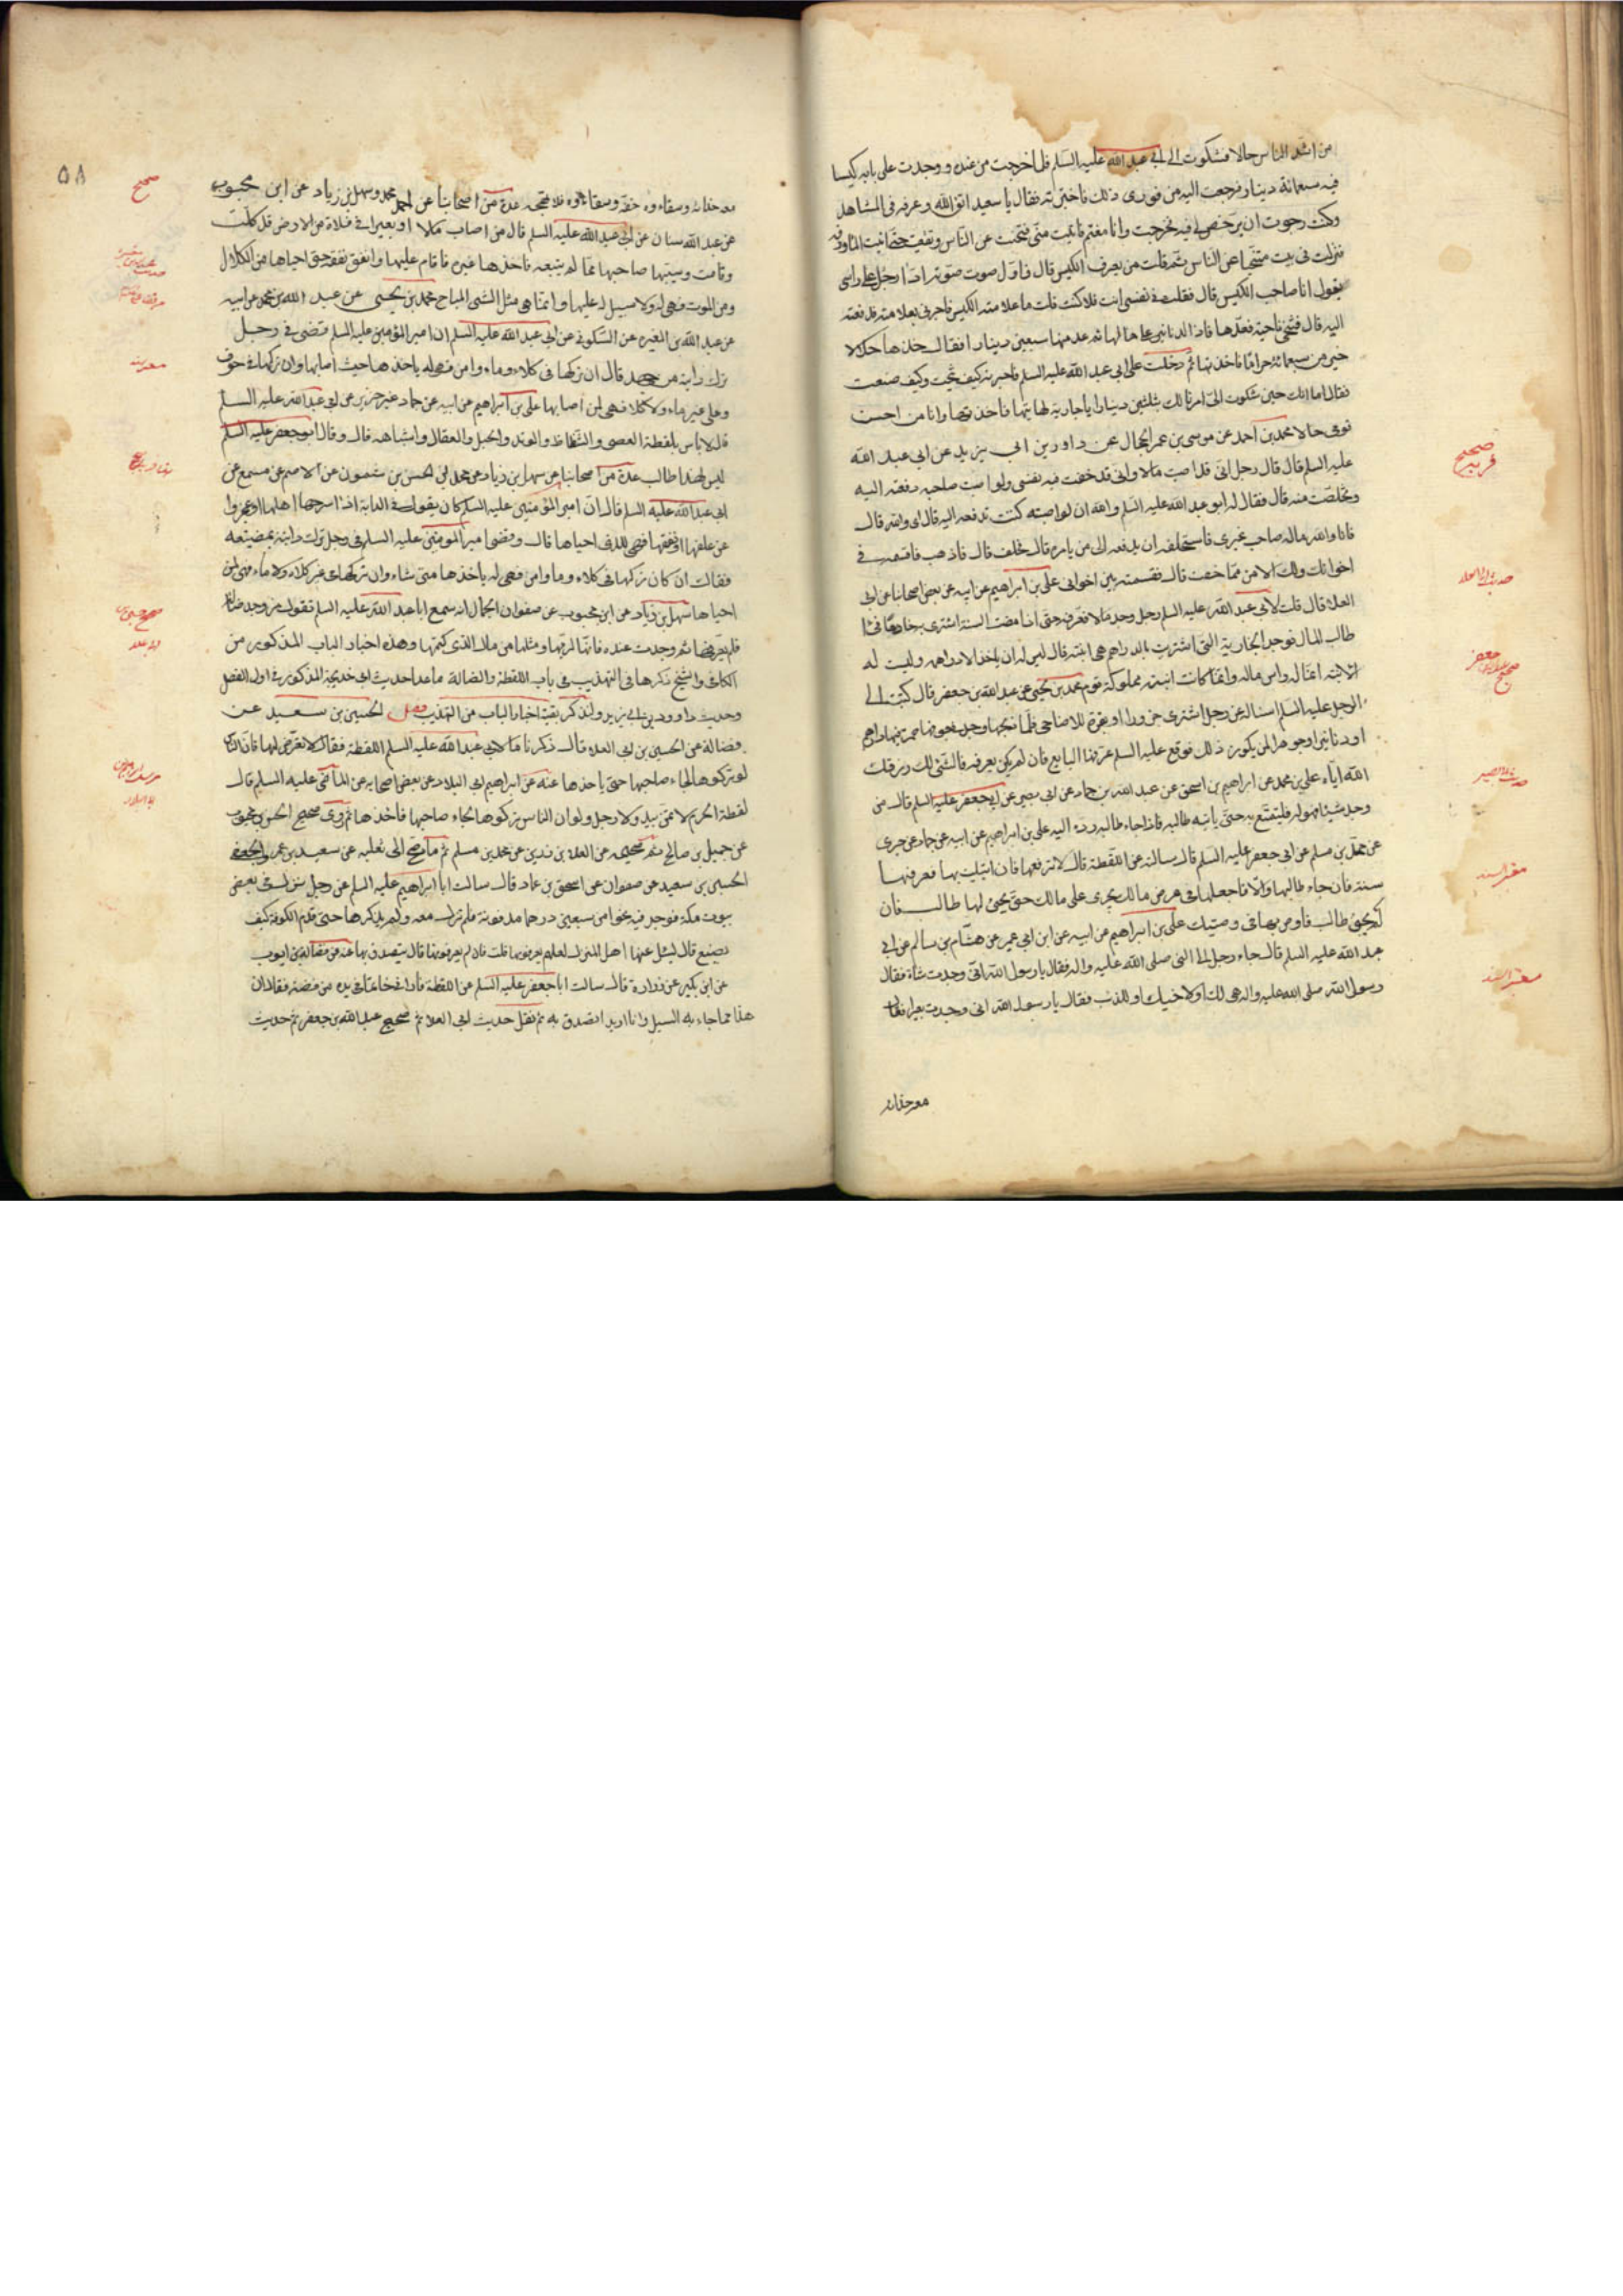 من اشد الناس حالا فشكوت الى ابي عبد الله عليه السلم فلما خرجت من عنده ووجدت على بابه كيسا
فيه سبعمائة دينار فرجعت اليه من فوري ذلك فاخبرته فقال يا سعيد اتق الله وعرفه في المشاهد
وكنت رجوت ان يرخص لي فيه فخرجت وانا مغتم فاتيت منى فتنحيت عن الناس حتى اتيت
فنزلت في بيت متنحيا عن الناس ثم قلت من يعرف الكيس قال فاول صوت صوته اذا رجل على راسي
يقول انا صاحب الكيس قال فقلت في نفسي انت فلا كنت قلت ما علامة الكيس فاخبرني بعلامته فدفعته
اليه قال فتنحى ناحية فعدها فاذا الدنانير على حالها ثم عد منها سبعين دينارا فقال خذها حلالا
خير من سبعمائة حراما فاخذتها ثم دخلت على ابي عبد الله عليه السلم فاخبرته كيف تنحيت وكيف صنعت
فقال اما انك حين شكوت الي امرنا لك بثلثين دينارا يا جارية هاتيها فاخذتها وانا من احسن
قومي حالا محمد بن احمد عن موسى بن عمر عن الحجال عن داود بن ابي يزيد عن ابي عبد الله
عليه السلم قال قال رجل اني قد اصبت مالا واني قد خفت فيه نفسي ولو اصبت صاحبه دفعته اليه
وتخلصت منه قال فقال له ابو عبد الله عليه السلم والله ان لو اصبته كنت تدفعه اليه قال اي والله قال
فانا والله ماله صاحب غيري فاستحلفه ان يدفعه الى من يامره قال فحلف قال فاذهب فاقسمه في
اخوانك ولك الامن مما خفت قال فقسمته بين اخواني علي بن ابراهيم عن ابيه عن بعض اصحابنا عن ابي
العلا قال قلت لابي عبد الله عليه السلم رجل وجد مالا فعرفه حتى اذا مضت السنة اشترى به خادما فجاء
طالب المال فوجد الجارية التي اشتريت بالدراهم هي ابنته قال ليس له ان ياخذ الا دراهمه وليست له
الابنة انما له راس ماله وانما كانت ابنته مملوكة قوم محمد بن يحيى عن عبد الله بن جعفر قال كتبت الى
الرجل عليه السلم اساله عن رجل اشترى جزورا او بقرة للاضاحي فلما ذبحها وجد في جوفها صرة فيها دراهم
او دنانير او جوهرة لمن يكون ذلك فوقع عليه السلم عرفها البايع فان لم يكن يعرفها فالشئ لك رزقك
الله اياه علي بن محمد عن ابراهيم بن اسحق عن عبد الله بن حماد عن ابي بصير عن ابي جعفر عليه السلم قال من
وجد شيئا فهو له فليتمتع به حتى ياتيه طالبه فاذا جاء طالبه رده اليه علي بن ابراهيم عن ابيه عن حماد عن حريز
عن محمد بن مسلم عن ابي جعفر عليه السلم قال سالته عن اللقطة قال لا ترفعها فان ابتليت بها فعرفها
سنة فان جاء طالبها والا فاجعلها في عرض مالك يجري على مالك حتى يجئ لها طالب فان
لم يجئ طالب فاوص بها في وصيتك علي بن ابراهيم عن ابيه عن ابن ابي عمير عن هشام بن سالم عن ابي
عبد الله عليه السلم قال جاء رجل الى النبي صلى الله عليه واله فقال يا رسول الله اني وجدت شاة فقال
رسول الله صلى الله عليه واله هي لك او لاخيك او للذئب فقال يا رسول الله اني وجدت بعيرا فقال
معه حذاؤه
صحيح
معتبر السند
معتبر السند
٥٨
معه حذاؤه وسقاءه حذاؤه خفه وسقاءه كرشه فلا تهجه عدة من اصحابنا عن احمد بن محمد وسهل بن زياد عن ابن محبوب
عن عبد الله سنان عن ابي عبد الله عليه السلم قال من اصاب مالا او بعيرا في فلاة من الارض قد كلت
وقامت وسيبها صاحبها مما لم يتبعه فاخذها غيره فاقام عليها وانفق نفقة حتى احياها من الكلال
ومن الموت فهي له ولا سبيل له عليها وانما هي مثل الشئ المباح محمد بن يحيى عن عبد الله بن محمد عن ابيه
عن عبد الله بن المغيرة عن السكوني عن ابي عبد الله عليه السلم ان امير المؤمنين عليه السلم قضى في رجل
ترك دابته من جهد قال ان تركها في كلاء وماء وامن فهي له ياخذها حيث اصابها وان تركها في خوف
وعلى غير ماء ولا كلا فهي لمن اصابها علي بن ابراهيم عن ابيه عن حماد عن حريز عن ابي عبد الله عليه السلم
قال لا باس بلقطة العصى والشظاظ والوتد والحبل والعقال واشباهه قال وقال ابو جعفر عليه السلم
ليس لهذا طالب عدة من اصحابنا عن سهل بن زياد عن محمد بن الحسن بن شمون عن الاصم عن مسمع عن
ابي عبد الله عليه السلم قال ان امير المؤمنين عليه السلم كان يقول في الدابة اذا سرحها اهلها او عجزوا
عن علفها او نفقتها فهي للذي احياها قال وقضى امير المؤمنين عليه السلم في رجل ترك دابته بمضيعه
فقال ان كان تركها في كلاء وماء وامن فهي له ياخذها متى شاء وان تركها في غير كلاء ولا ماء فهي لمن
احياها سهل بن زياد عن ابن محبوب عن صفوان الجمال انه سمع ابا عبد الله عليه السلم يقول من وجد ضالة
فلم يعرفها ثم وجدت عنده فانها لربها ومثلها من مال الذي كتمها وهذه اخبار الباب المذكور من
الكافي والشيخ ذكرها في التهذيب في باب اللقطة والضالة ماعدا حديث ابي خديجة المذكور في اول الفصل
وحديث داود بن ابي يزيد ولنذكر بقية اخبار الباب من التهذيب فصل الحسين بن سعيد عن
فضالة عن الحسين بن ابي العلاء قال ذكرنا لابي عبد الله عليه السلم اللقطة فقال لا تعرض لها فان الناس
لو تركوها لجاء صاحبها حتى ياخذها عنه عن ابراهيم بن ابي البلاد عن بعض اصحابه عن الماضي عليه السلم قال
لقطة الحرم لا تمس بيد ولا رجل ولو ان الناس تركوها لجاء صاحبها فاخذها ثم روى صحيح الحسن بن محبوب
عن جميل بن صالح ثم صحيحه عن العلا بن رزين عن محمد بن مسلم ثم ما صح الى ثعلبه عن سعيد بن عمرو الجعفي
الحسين بن سعيد عن صفوان عن اسحق بن عمار قال سالت ابا ابراهيم عليه السلم عن رجل نزل في بعض
بيوت مكة فوجد فيه نحوا من سبعين درهما مدفونة فلم تزل معه ولم يذكرها حتى قدم الكوفة كيف
يصنع قال يسئل عنها اهل المنزل لعلهم يعرفونها قلت فان لم يعرفونها قال يتصدق بها عنه عن فضالة بن ايوب
عن ابن بكير عن زرارة قال سالت ابا جعفر عليه السلم عن اللقطة فاراني خاتما في يده من فضة فقال ان
هذا مما جاء به السيل وانا اريد اتصدق به ثم نقل حديث ابي العلا ثم صحيح عبد الله بن جعفر ثم حديث
صحيح